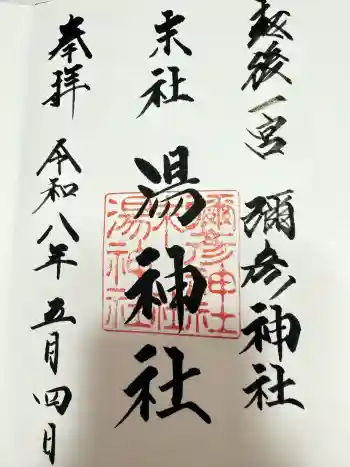 越後一宮 彌彦神社
末社
湯神社
奉拝
令和八年五月四日
彌彦神社
末社
湯神社